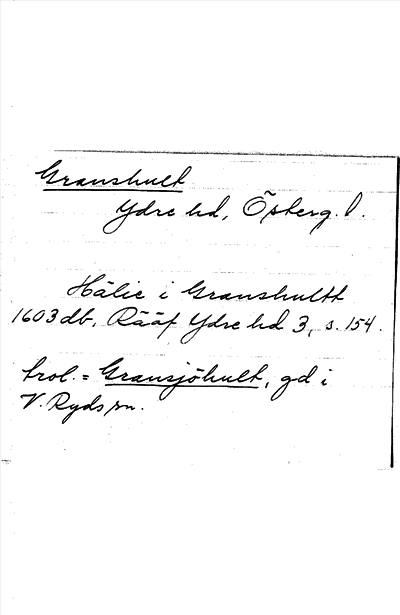 Granshult
Ydre hd, Österg. l.
Hålie i Granshultt
1603 db, Rääf Ydre hd 3, s. 154.
trol. = Gransjöhult, gd i
V. Ryds sn.